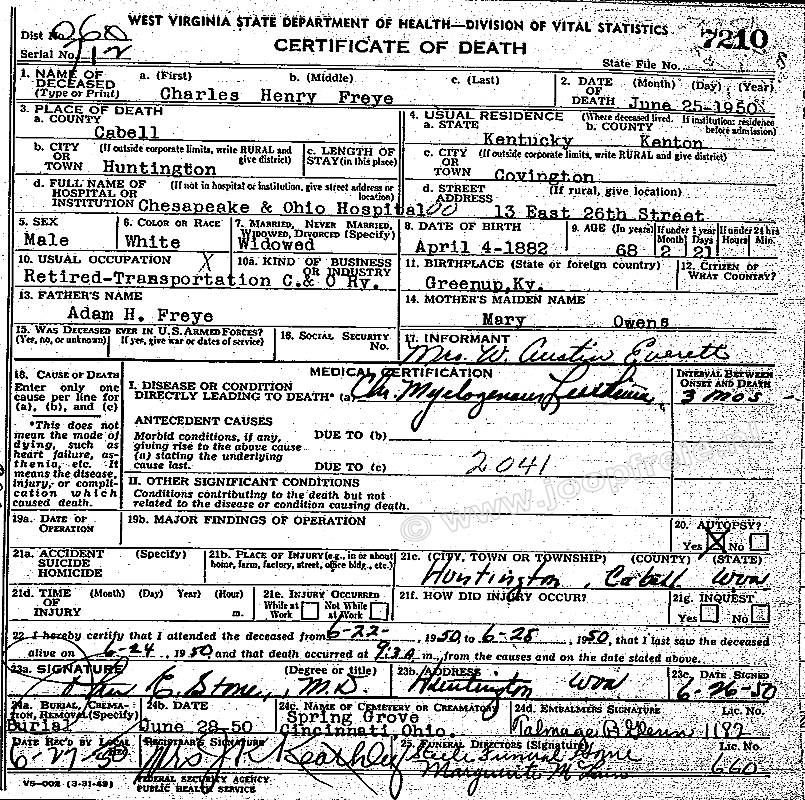 WEST VIRGINIA STATE DEPARTMENT OF HEALTH—DIVISION OF VITAL STATISTICS
Dist No. 060
Serial No. 112
CERTIFICATE OF DEATH
State File No. 7210
1. NAME OF DECEASED (Type or Print) a. (First) b. (Middle) c. (Last)
Charles Henry Freye
2. DATE OF DEATH (Month) (Day) (Year)
June 25-1950
3. PLACE OF DEATH
a. COUNTY
Cabell
4. USUAL RESIDENCE (Where deceased lived. If institution: residence before admission)
a. STATE b. COUNTY
Kentucky Kenton
b. CITY OR TOWN (If outside corporate limits, write RURAL and give district)
Huntington
c. LENGTH OF STAY (in this place)
c. CITY OR TOWN (If outside corporate limits, write RURAL and give district)
Covington
d. FULL NAME OF HOSPITAL OR INSTITUTION (If not in hospital or institution, give street address or location)
Chesapeake & Ohio Hospital
d. STREET ADDRESS (If rural, give location)
13 East 26th Street
5. SEX
Male
6. COLOR OR RACE
White
7. MARRIED, NEVER MARRIED, WIDOWED, DIVORCED (Specify)
Widowed
8. DATE OF BIRTH
April 4-1882
9. AGE (In years) If under 1 year Month Days If under 24 hrs Hours Min.
68 2 21
10. USUAL OCCUPATION X
10a. KIND OF BUSINESS OR INDUSTRY
Retired-Transportation C.& O Ry.
11. BIRTHPLACE (State or foreign country)
Greenup,Ky.
12. CITIZEN OF WHAT COUNTRY?
13. FATHER'S NAME
Adam H. Freye
14. MOTHER'S MAIDEN NAME
Mary Owens
15. WAS DECEASED EVER IN U.S. ARMED FORCES?
(Yes, no, or unknown) If yes, give war or dates of service)
16. SOCIAL SECURITY No.
17. INFORMANT
Mrs. W. Austin Everett
MEDICAL CERTIFICATION
18. CAUSE OF DEATH
Enter only one cause per line for (a), (b), and (c)
*This does not mean the mode of dying, such as heart failure, asthenia, etc. It means the disease, injury, or complication which caused death.
I. DISEASE OR CONDITION DIRECTLY LEADING TO DEATH* (a) Chr. Myelogenous Leukemia
INTERVAL BETWEEN ONSET AND DEATH
3 mos
ANTECEDENT CAUSES
Morbid conditions, if any, giving rise to the above cause (a) stating the underlying cause last.
DUE TO (b)
DUE TO (c)
2041
II. OTHER SIGNIFICANT CONDITIONS
Conditions contributing to the death but not related to the disease or condition causing death.
© www.joopfreje.nl
19a. DATE OF OPERATION
19b. MAJOR FINDINGS OF OPERATION
20. AUTOPSY?
Yes X No
21a. ACCIDENT SUICIDE HOMICIDE (Specify)
21b. PLACE OF INJURY (e.g., in or about home, farm, factory, street, office bldg., etc.)
21c. (CITY, TOWN OR TOWNSHIP) (COUNTY) (STATE)
Huntington, Cabell WVa
21d. TIME OF INJURY (Month) (Day) (Year) (Hour) m.
21e. INJURY OCCURRED
While at Work Not While at Work
21f. HOW DID INJURY OCCUR?
21g. INQUEST
Yes No
22. I hereby certify that I attended the deceased from 6-22-, 1950, to 6-25, 1950, that I last saw the deceased
alive on 6-24, 1950, and that death occurred at 9:30 m., from the causes and on the date stated above.
23a. SIGNATURE (Degree or title)
E. Stone, M.D.
23b. ADDRESS
Huntington WVa
23c. DATE SIGNED
6-26-50
24a. BURIAL, CREMATION, REMOVAL (Specify)
Burial
24b. DATE
June 28-50
24c. NAME OF CEMETERY OR CREMATORY
Spring Grove
Cincinnati,Ohio.
24d. EMBALMERS SIGNATURE Lic. No.
Palmage B Glenn 1182
DATE REC'D BY LOCAL
6-27-50
REGISTRAR'S SIGNATURE
Mrs J K Kearbley
25. FUNERAL DIRECTORS (Signature) Lic. No.
Steele Funeral Home
Marguerite M 660
VS-002 (3-31-49)
FEDERAL SECURITY AGENCY
PUBLIC HEALTH SERVICE